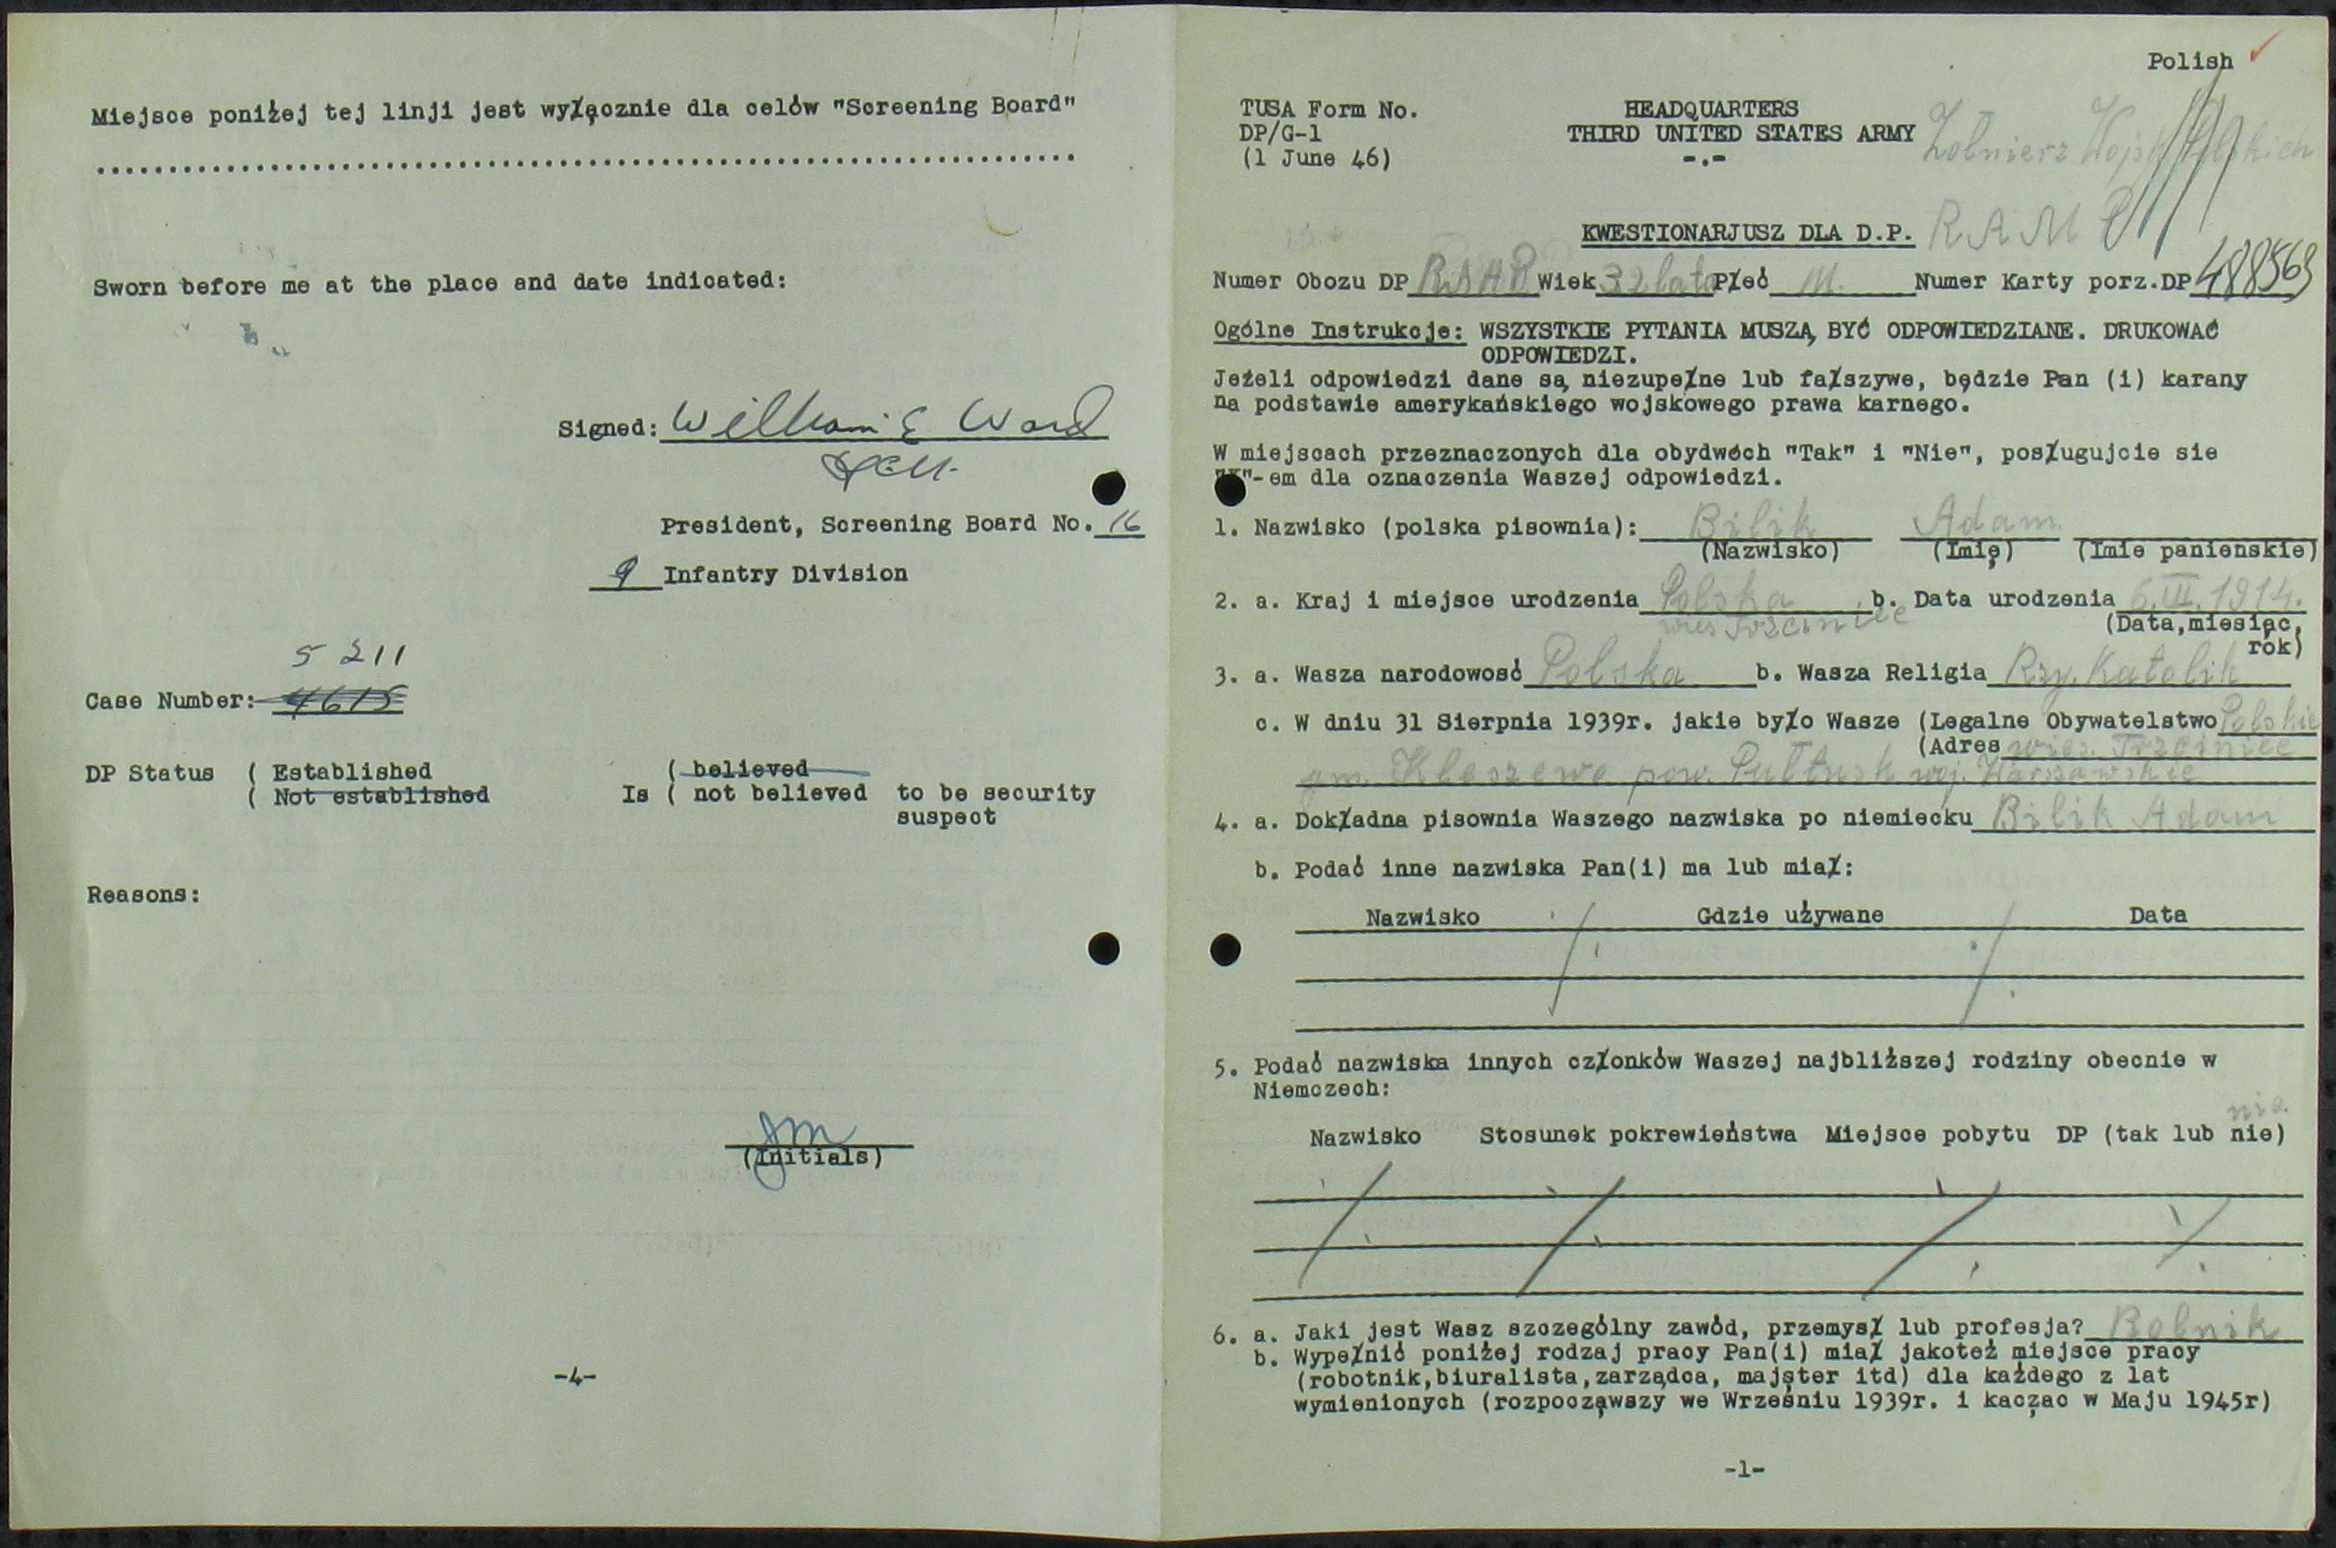 Miejsce poniżej tej linji jest wyłącznie dla celów "Screening Board"
Sworn before me at the place and date indicated:
Signed: William E Ward
President, Screening Board No. 16
9 Infantry Division
5211
Case Number: 4615
DP Status ( Established
( Not established
Is ( believed
( not believed to be security
suspect
Reasons:
JM
(Initials)
-4-
Polish
TUSA Form No.
DP/G-1
(1 June 46)
HEADQUARTERS
THIRD UNITED STATES ARMY
-.-
Żołnierz Wojsk Polskich
RAMP
KWESTIONARJUSZ DLA D.P.
Numer Obozu DP Wiek 32 lata Płeć M. Numer Karty porz.DP 488569
Ogólne Instrukcje: WSZYSTKIE PYTANIA MUSZĄ BYĆ ODPOWIEDZIANE. DRUKOWAĆ
ODPOWIEDZI.
Jeżeli odpowiedzi dane są niezupełne lub fałszywe, będzie Pan (i) karany
na podstawie amerykańskiego wojskowego prawa karnego.
W miejscach przeznaczonych dla obydwóch "Tak" i "Nie", posługujcie sie
"-em dla oznaczenia Waszej odpowiedzi.
1. Nazwisko (polska pisownia): Bilik Adam
(Nazwisko) (Imię) (Imie panienskie)
2. a. Kraj i miejsce urodzenia Polska b. Data urodzenia 6.III.1914.
wieś Trzciniec
(Data,miesiąc,
rok)
3. a. Wasza narodowosć Polska b. Wasza Religia Rzy. Katolik
c. W dniu 31 Sierpnia 1939r. jakie było Wasze (Legalne Obywatelstwo Polskie
(Adres wieś Trzciniec
gm. Kleszewo pow. Pułtusk woj. Warszawskie
4. a. Dokładna pisownia Waszego nazwiska po niemiecku Bilik Adam
b. Podać inne nazwiska Pan(i) ma lub miał:
Nazwisko Gdzie używane Data
5. Podać nazwiska innych członków Waszej najbliższej rodziny obecnie w
Niemczech:
nie.
Nazwisko Stosunek pokrewieństwa Miejsce pobytu DP (tak lub nie)
6. a. Jaki jest Wasz szczególny zawód, przemysł lub profesja? Rolnik
b. Wypełnić poniżej rodzaj pracy Pan(i) miał jakoteż miejsce pracy
(robotnik,biuralista,zarządca, majster itd) dla każdego z lat
wymienionych (rozpocząwszy we Wrześniu 1939r. i kacząc w Maju 1945r)
-1-